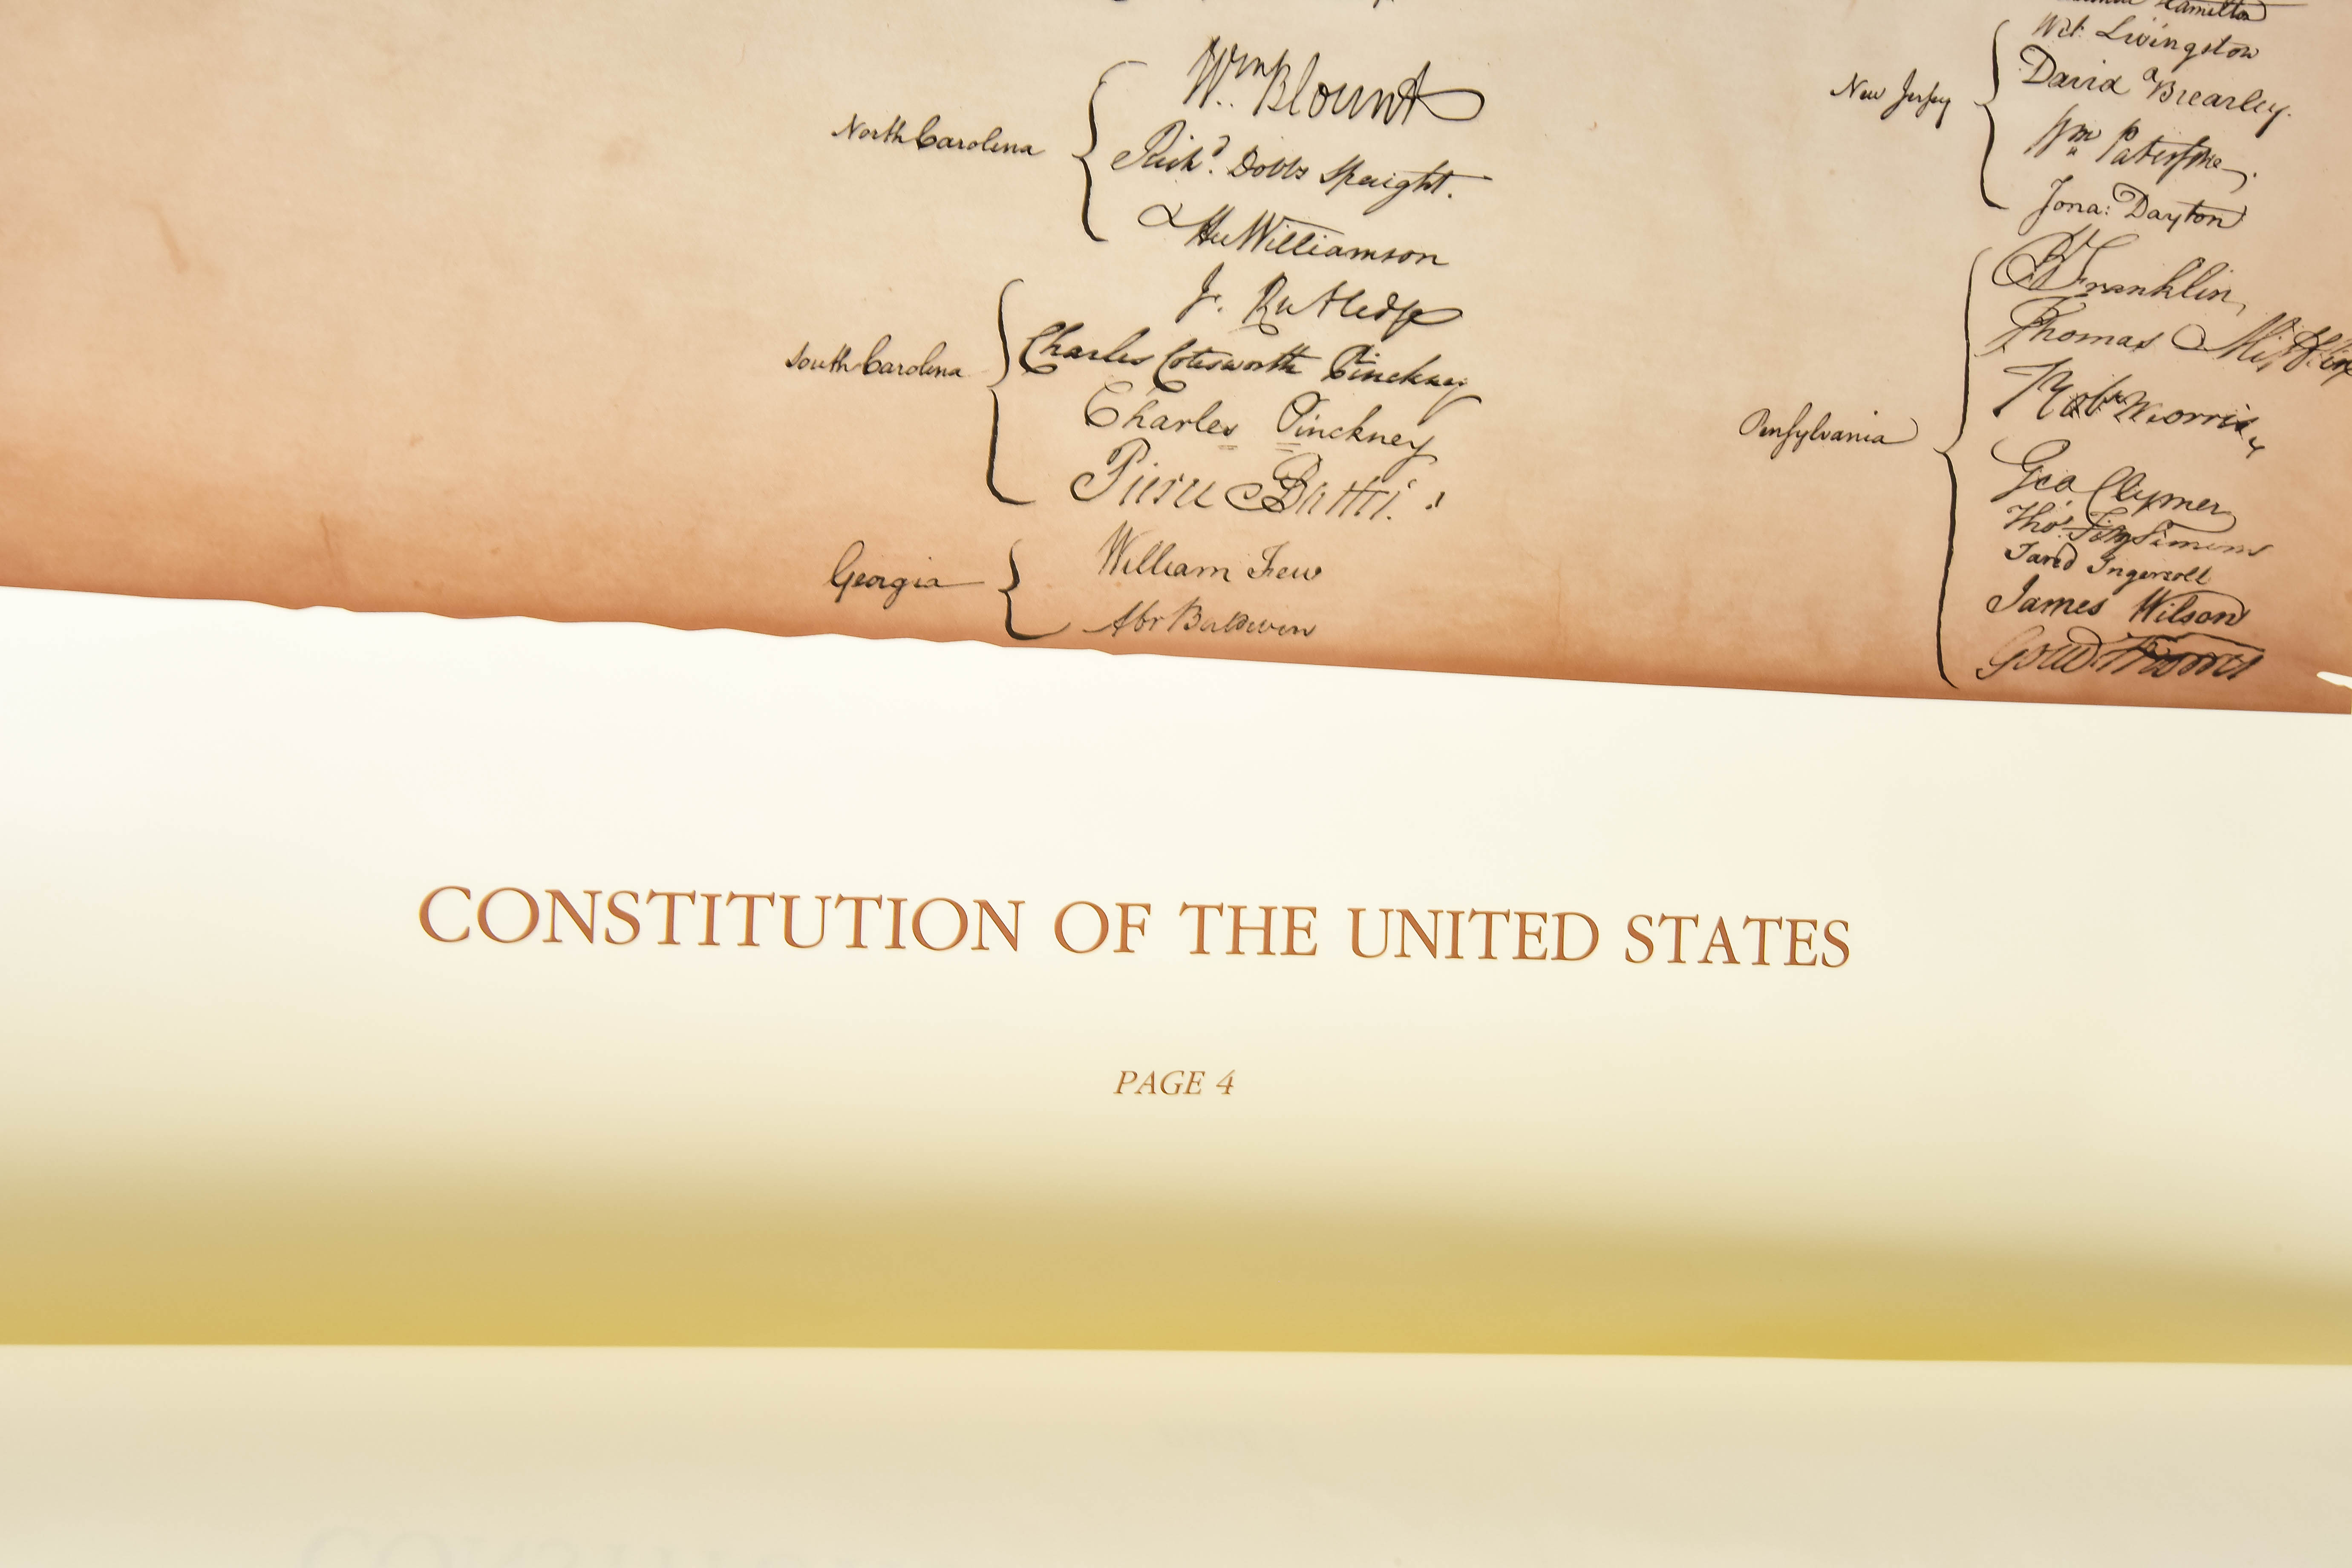 North Carolina
Wm Blount
Richd. Dobbs Spaight.
Hu Williamson
South Carolina
J. Rutledge
Charles Cotesworth Pinckney
Charles Pinckney
Pierce Butler.
Georgia
William Few
Abr Baldwin
Hamilton
Wil: Livingston
New Jersey
David Brearley.
Wm Paterson.
Jona: Dayton
Pensylvania
B Franklin
Thomas Mifflin
Robt Morris
Geo Clymer
Thos. FitzSimons
Jared Ingersoll
James Wilson
Gouv Morris
CONSTITUTION OF THE UNITED STATES
PAGE 4